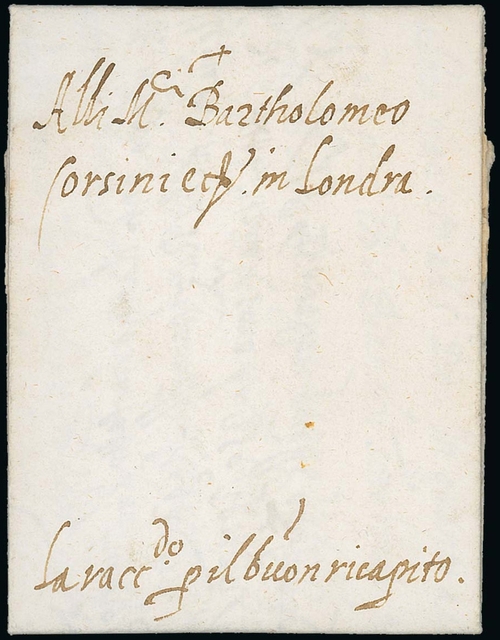 Alli M.ci Bartholomeo
Corsini et in Londra.
La racc.do p il buon ricapito.